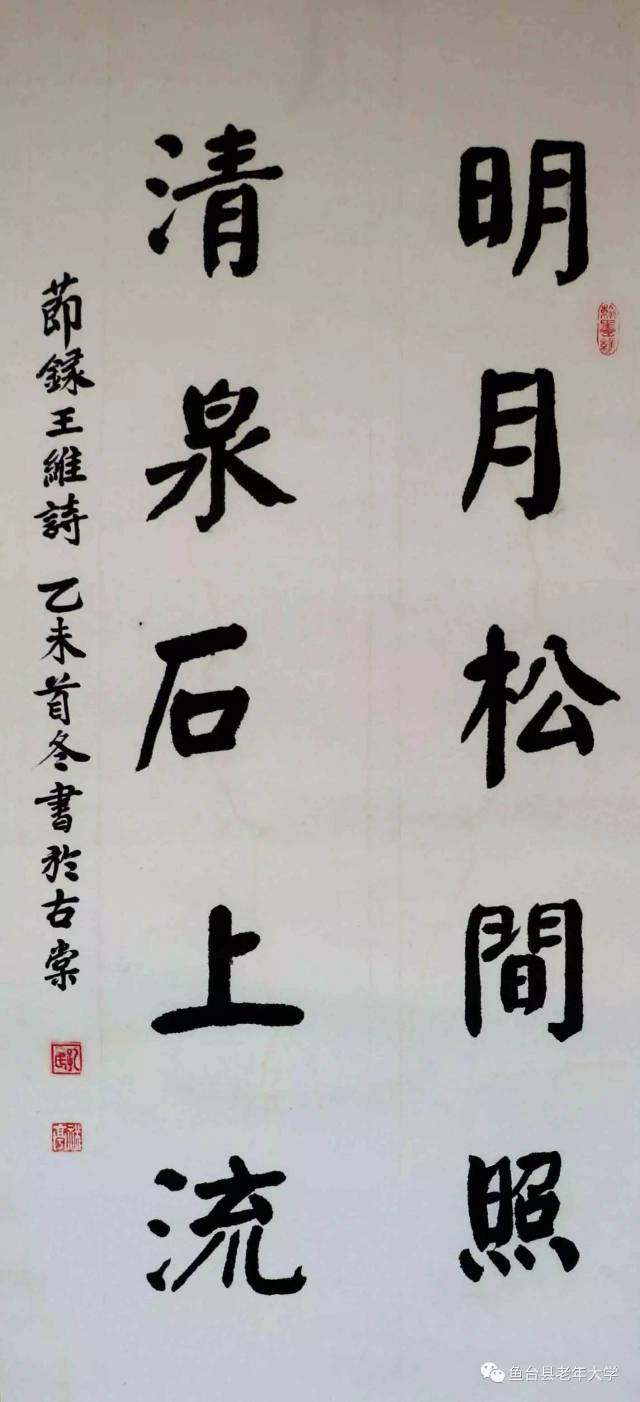 明月松間照
清泉石上流
節録王維詩 乙未首冬書於古棠
鱼台县老年大学